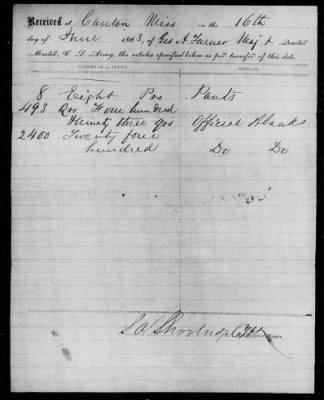 Received at Canton Miss on the 16th
day of June 1863, of Geo. A. Farner Maj & Quarter
Master, C. S. Army, the articles specified below as per transfer of this date.
NUMBER OF ARTICLES. ARTICLES.
8 Eight Prs Pants
493 Qrs Four hundred
Ninety three qrs Official Blanks
2400 Twenty four
hundred Do Do